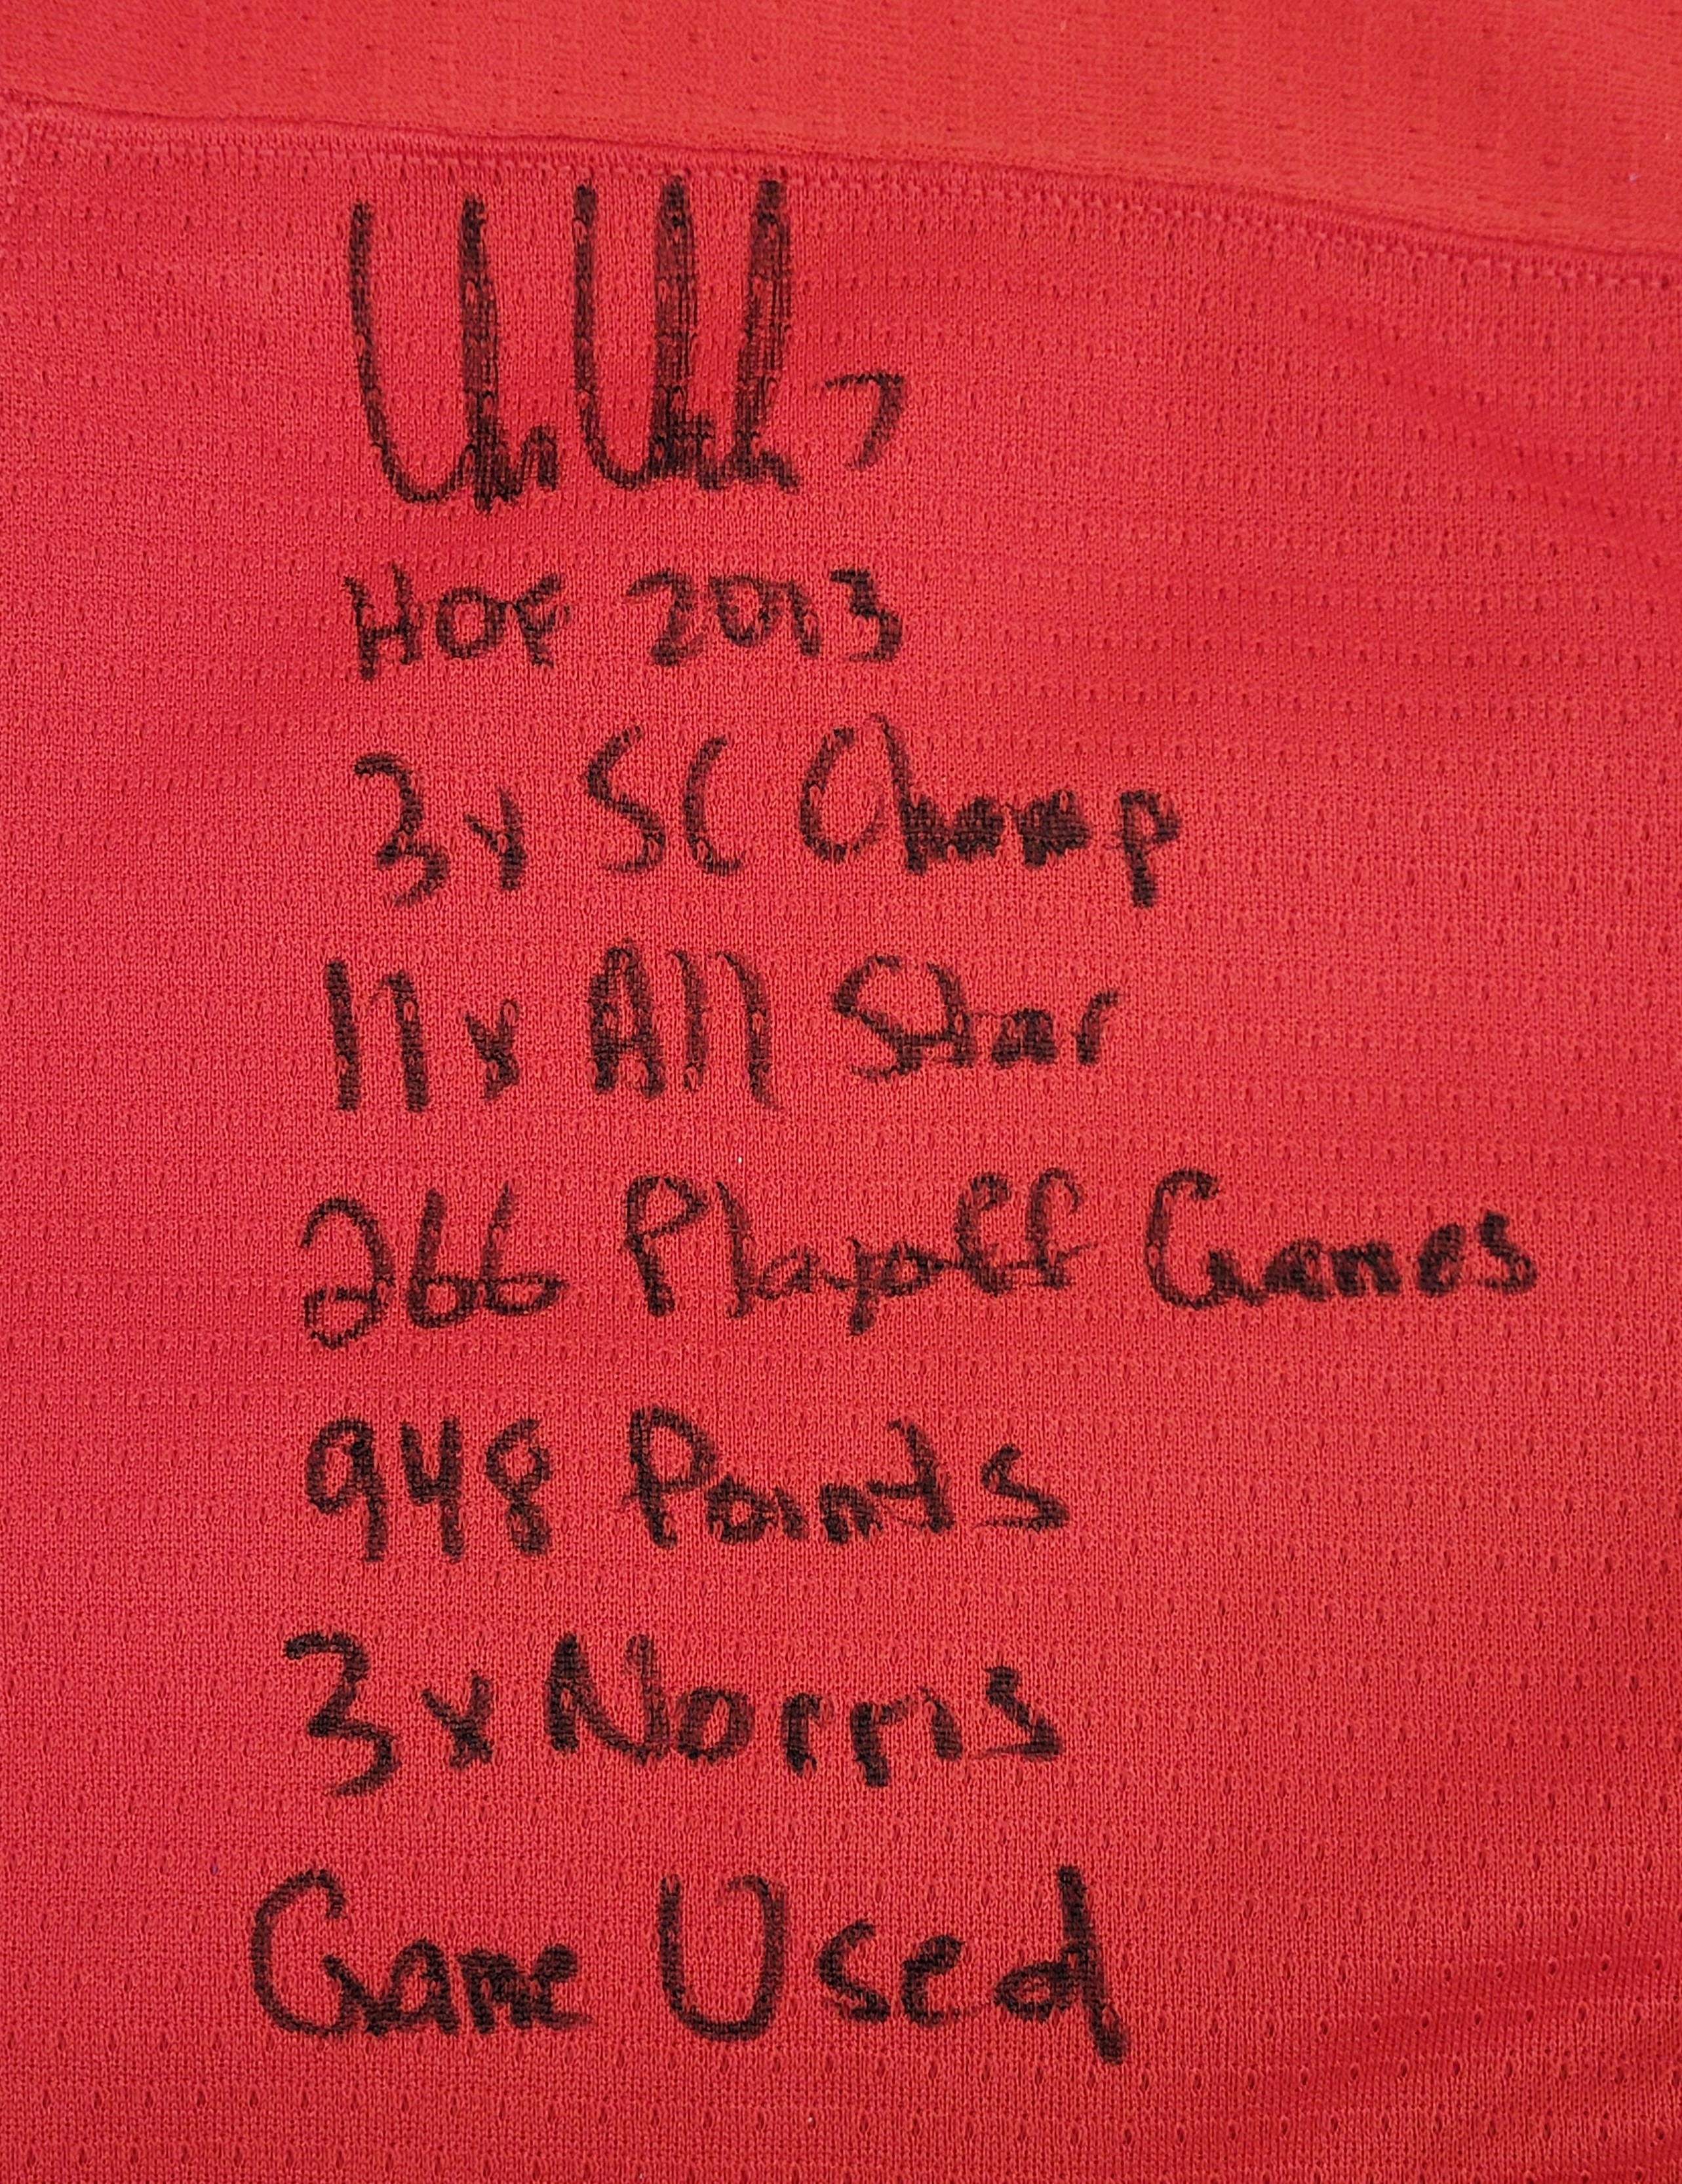 7
HOF 2013
3x SC Champ
11x All Star
266 Playoff Games
948 Points
3x Norris
Game Used